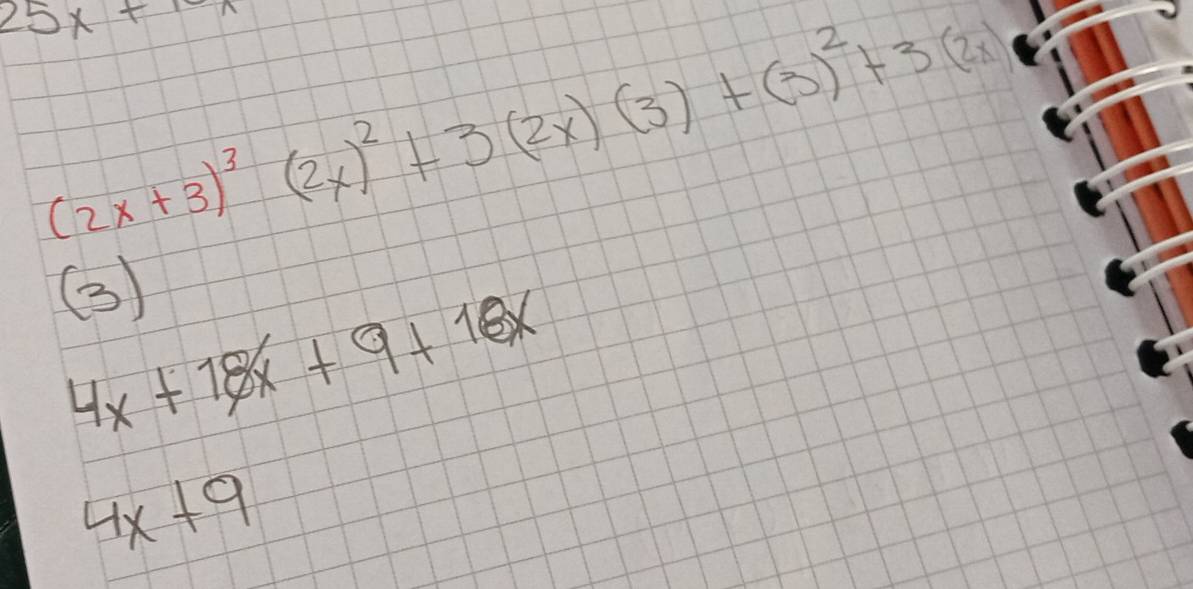 25x +
(2x+3)³ (2x)² + 3(2x)(3) + (3)² + 3(2x)
(3)
4x + 18x + 9 + 18x
4x + 9